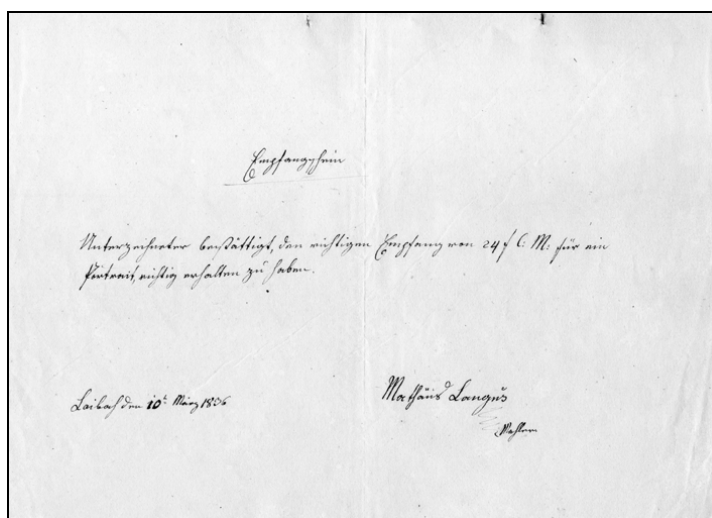 Empfangschein
Unterzeichneter bestättigt, den richtigen Empfang von 24 f C: M: für ein
Portrait, richtig erhalten zu haben.
Laibach den 10t März 1836
Mathäus Langus
Mahler